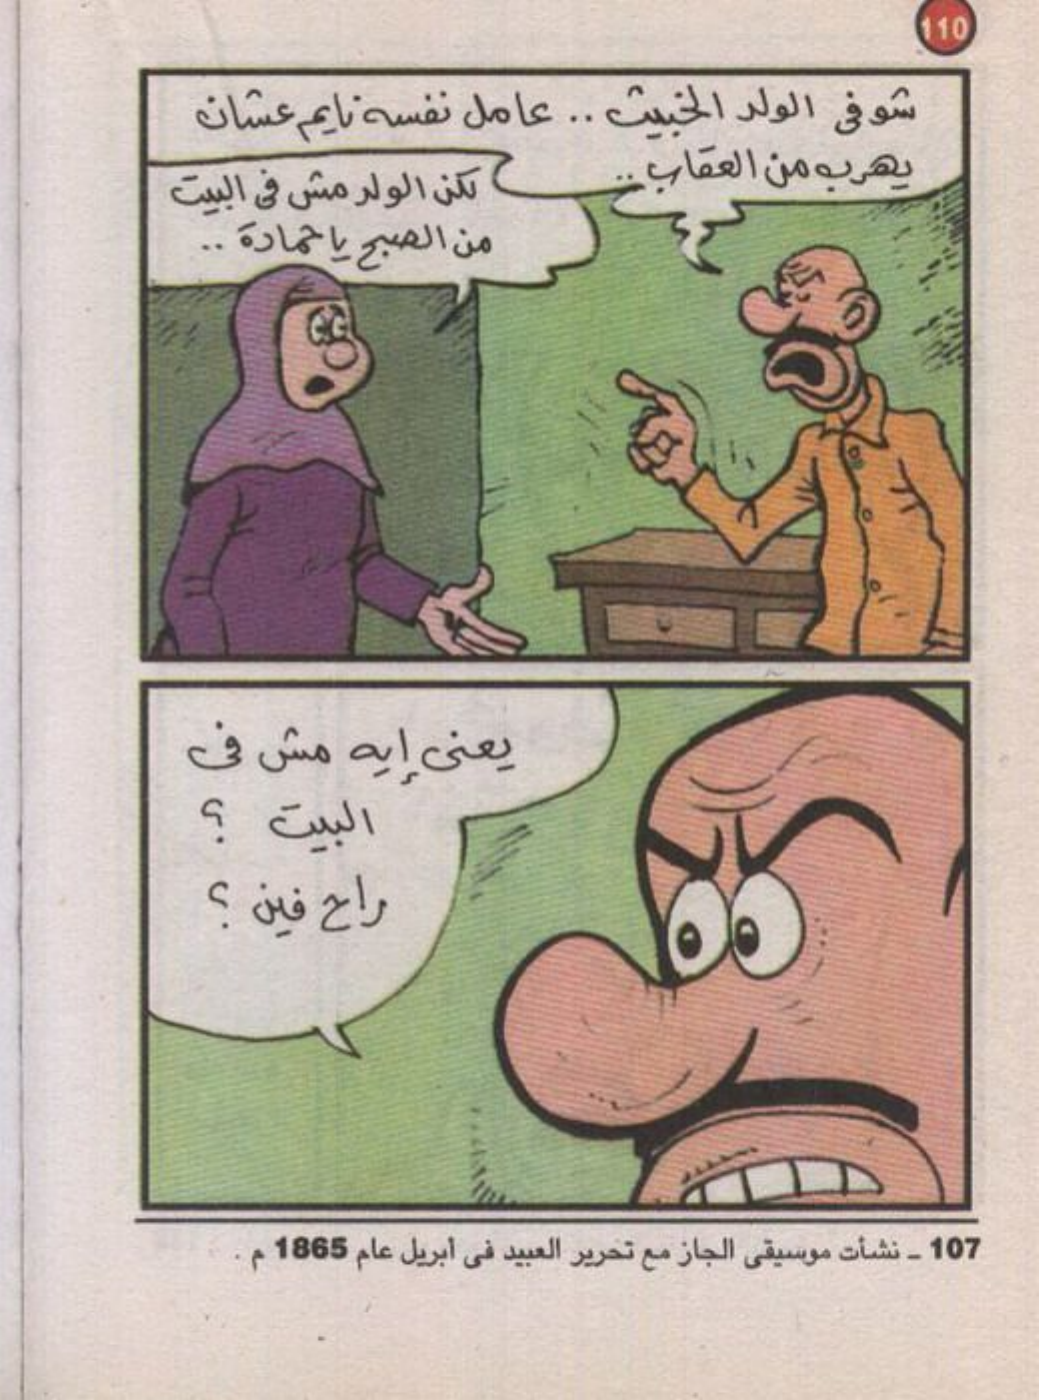 110
شوفى الولد الخبيث .. عامل نفسه نايم عشان
يهرب من العقاب ..
لكن الولد مش فى البيت
من الصبح يا حمادة ..
يعنى إيه مش فى
البيت ؟
راح فين ؟
107 ــ نشأت موسيقى الجاز مع تحرير العبيد فى أبريل عام 1865 م .